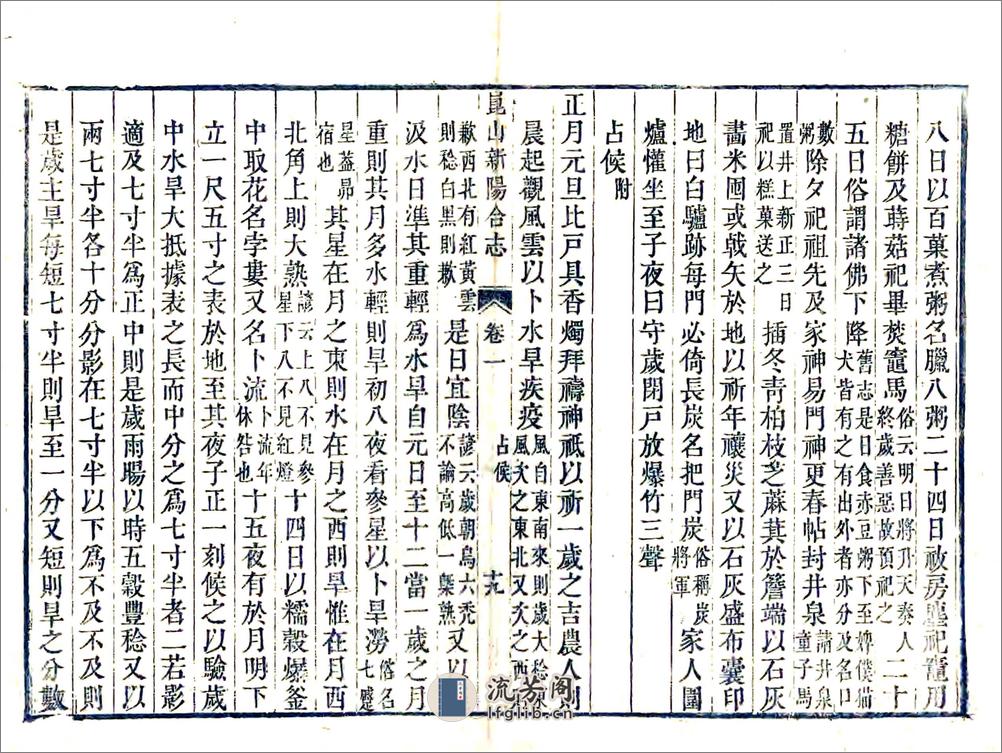 八日以百菓煮粥名臘八粥二十四日祓房塵祀竈用
糖餅及蒔菇祀畢焚竈馬俗云明日將升天奏人二十終歲善惡故預祀之
五日俗謂諸佛下降舊志是日食赤豆粥下至婢僕猫犬皆有之有出外者亦分及名口
數粥除夕祀祖先及家神易門神更春帖封井泉請井泉童子馬
置井上新正三日祀以糕菓送之插冬青柏枝芝蔴萁於簷端以石灰
畵米囤或戟矢於地以祈年禳災又以石灰盛布囊印
地曰白驢跡每門必倚長炭名把門炭俗稱炭將軍家人圍
爐懽坐至子夜曰守歲閉戸放爆竹三聲
占候附
正月元旦比戸具香燭拜禱神祇以祈一歲之吉農人則
晨起觀風雲以卜水旱疾疫風自東南來則歲大稔東風次之東北又次之西
崑山新陽合志 卷一 占候 十九
歉西北有紅黃雲則稔白黑則歉是日宜陰諺云歲朝烏六禿不論高低一槩熟又以
汲水日準其重輕爲水旱自元日至十二當一歲之月
重則其月多水輕則旱初八夜看參星以卜旱澇俗名七蹙
星葢昴宿也其星在月之東則水在月之西則旱惟在月西
北角上則大熟諺云上八不見參星下八不見紅燈十四日以糯穀爆釜
中取花名孛婁又名卜流卜流年休咎也十五夜有於月明下
立一尺五寸之表於地至其夜子正一刻候之以驗歲
中水旱大抵據表之長而中分之爲七寸半者二若影
適及七寸半爲正中則是歲雨暘以時五穀豐稔又以
兩七寸半各十分分影在七寸半以下爲不及不及則
是歲主旱每短七寸半則旱至一分又短則旱之分數
流芳阁
lfglib.cn